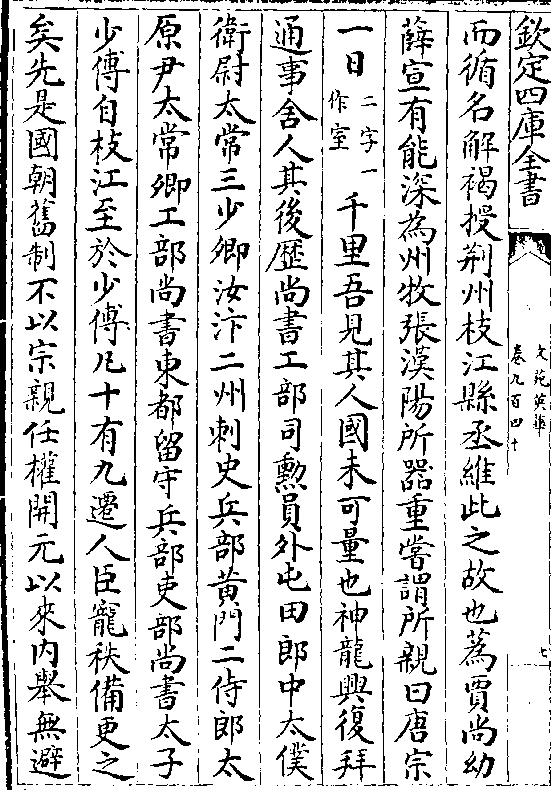 欽定四庫全書
文苑英華
卷九百四十
七
而循名解褐授荆州枝江縣丞維此之故也蒍賈尚幼
薛宣有能深為州牧張漢陽所器重嘗謂所親曰唐宗
一日二字一作室千里吾見其人國未可量也神龍興復拜
通事舍人其後歴尚書工部司勲員外屯田郎中太僕
衛尉太常三少卿汝汴二州刺史兵部黄門二侍郎太
原尹太常卿工部尚書東都留守兵部吏部尚書太子
少傅自枝江至於少傅凡十有九遷人臣寵秩備更之
矣先是國朝舊制不以宗親任權開元以來内舉無避